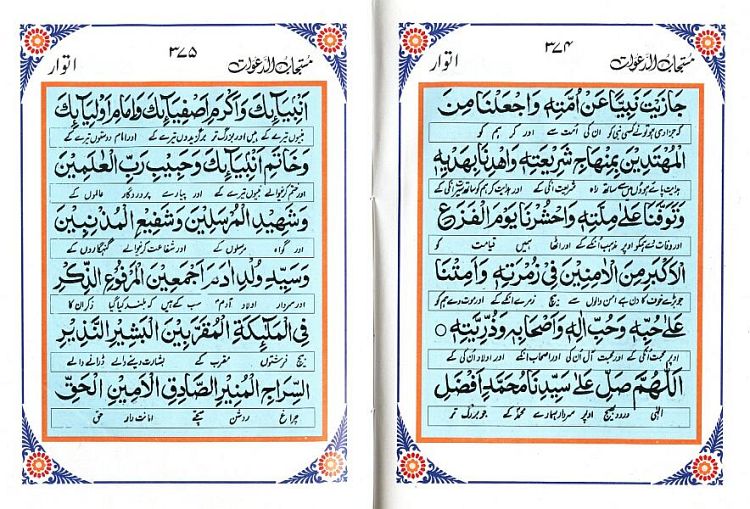 مستجاب الدعوات ٣٧٤ انوار
جَازَيْتَ نَبِيًّا عَنْ اُمَّتِهٖ وَاجْعَلْنَا مِنَ
کسی نبی کو ان کی امت سے اور کر ہم کو
الْمُهْتَدِيْنَ بِمِنْهَاجِ شَرِيْعَتِهٖ وَاهْدِنَا بِهَدْيِهٖ
راہ شریعت انکی کے اور ہدایت کر ہم کو
وَتَوَفَّنَا عَلٰى مِلَّتِهٖ وَاحْشُرْنَا يَوْمَ الْفَزَعِ
اور وفات دے ہمکو اوپر مذہب انکے کے اور اٹھا ہمیں قیامت کو
الْاَكْبَرِ مِنَ الْاٰمِنِيْنَ فِيْ زُمْرَتِهٖ وَاَمِتْنَا
جو بڑے خوف کا دن ہے امن والوں سے بیچ زمرے انکے کے اور موت دے ہم کو
عَلٰى حُبِّهٖ وَحُبِّ اٰلِهٖ وَاَصْحَابِهٖ وَذُرِّيَّتِهٖ ○
اوپر محبت انکی کے اور محبت آل ان کی اور اصحاب انکے اور اولاد ان کی کے
اَللّٰهُمَّ صَلِّ عَلٰى سَيِّدِنَا مُحَمَّدٍ اَفْضَلِ
الٰہی درود بھیج اوپر سردار ہمارے محمد کے جو بزرگ تر
مستجاب الدعوات ٣٧٥ انوار
اَنْبِيَآئِكَ وَاَكْرَمِ اَصْفِيَآئِكَ وَاِمَامِ اَوْلِيَآئِكَ
نبیوں تیرے کے ہیں اور بزرگ تر برگزیدوں تیرے کے اور امام دوستوں تیرے کے
وَخَاتَمِ اَنْبِيَآئِكَ وَحَبِيْبِ رَبِّ الْعٰلَمِيْنَ
اور ختم کرنیوالے نبیوں تیرے کے اور پیارے پروردگار عالموں کے
وَشَهِيْدِ الْمُرْسَلِيْنَ وَشَفِيْعِ الْمُذْنِبِيْنَ
اور گواہ مرسلوں کے اور شفاعت کرنیوالے گنہگاروں کے
وَسَيِّدِ وُلْدِ اٰدَمَ اَجْمَعِيْنَ الْمَرْفُوْعِ الذِّكْرِ
اور سردار اولاد آدم کے سب کے ہیں کہ بلند کیا گیا ذکر ان کا
فِي الْمَلٰٓئِكَةِ الْمُقَرَّبِيْنَ الْبَشِيْرِ النَّذِيْرِ
بیچ فرشتوں مقرب کے بشارت دینے والے ڈرانے والے
السِّرَاجِ الْمُنِيْرِ الصَّادِقِ الْاَمِيْنِ الْحَقِّ
چراغ روشن سچے امانت دار حق